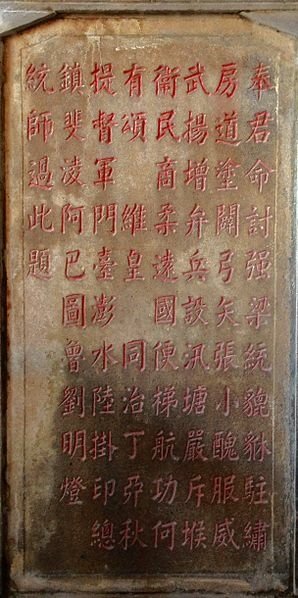 奉君命討强梁統貔貅駐繡
房道塗闢弓矢張小醜服威
武揚增弁兵設汛塘嚴斥堠
衞民商柔遠國便梯航功何
有頌 維皇 同治丁夘秋
提督軍門臺澎水陸掛印總
鎮斐凌阿巴圖魯劉明燈
統師過此題